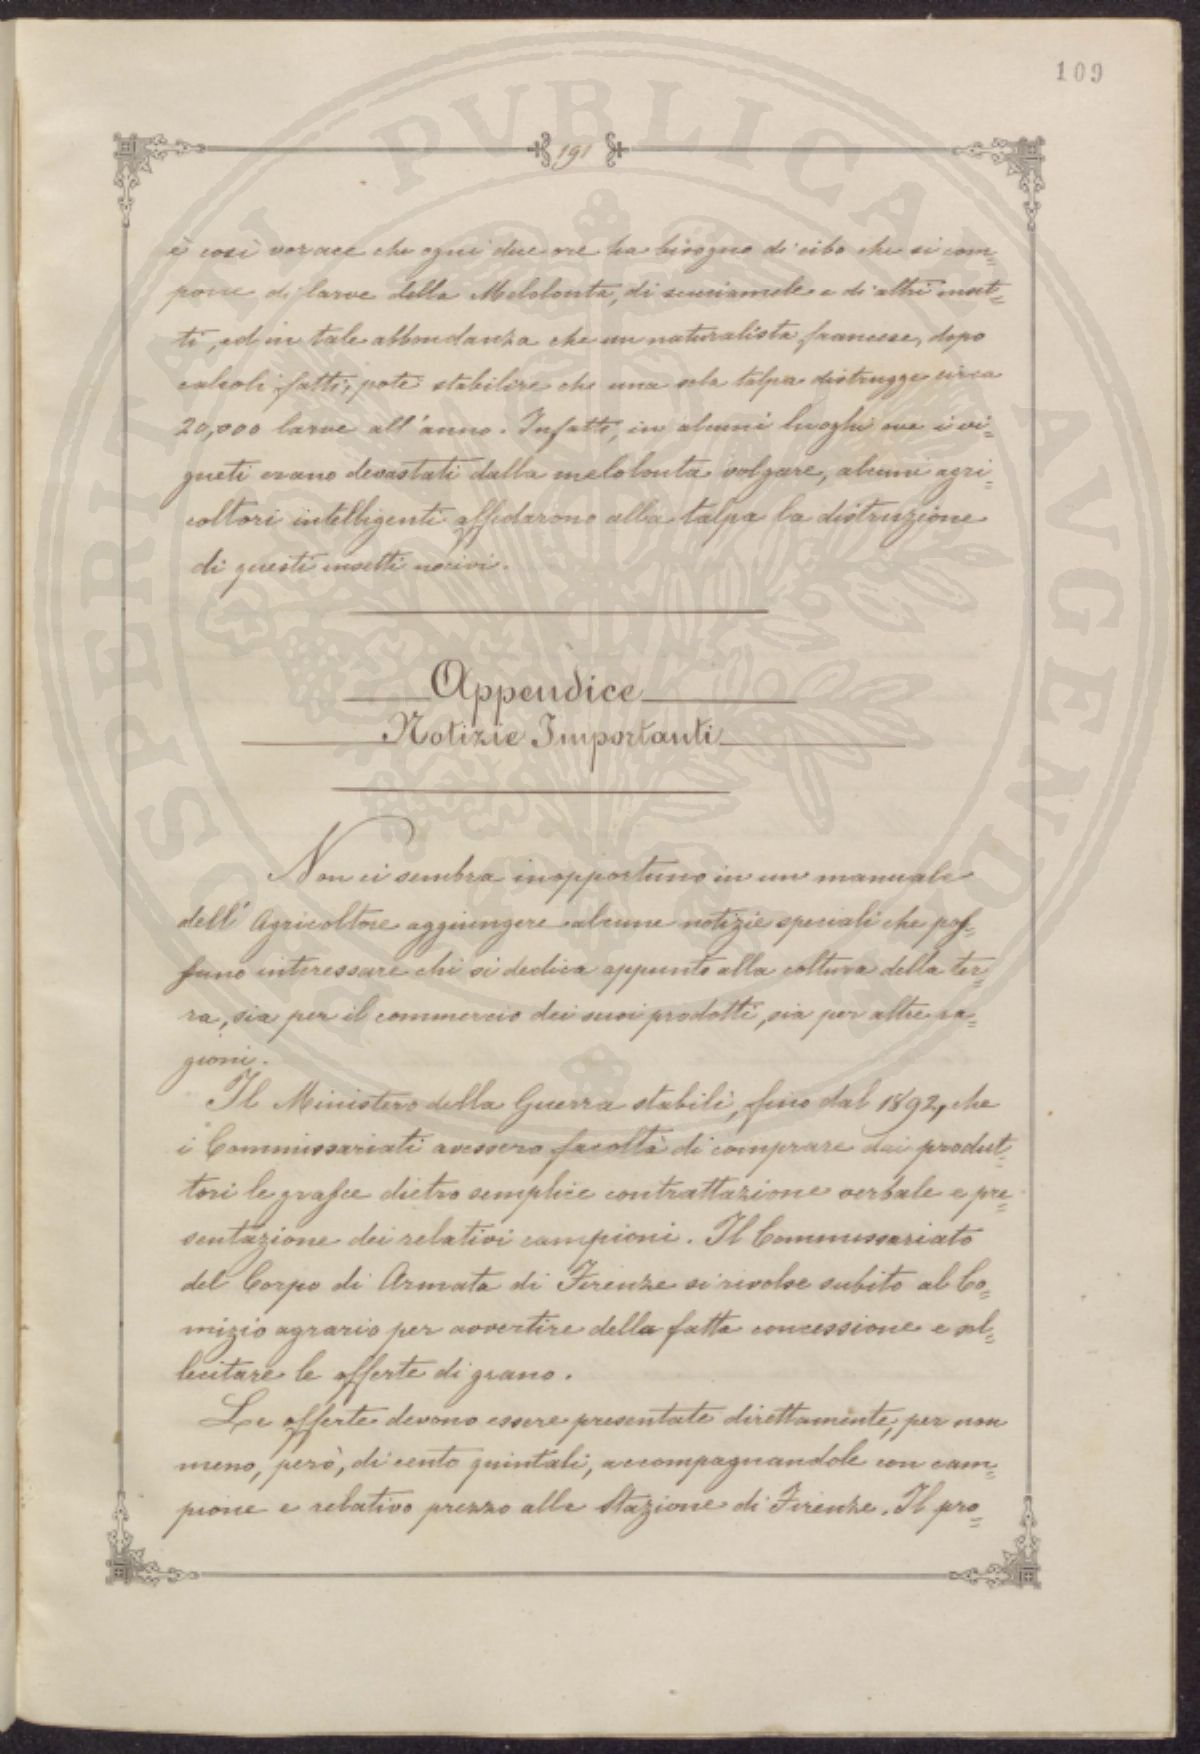 109
191
è così vorace che ogni due ore ha bisogno di cibo che si com=
pone di larve della Melolonta, di e di altri inset=
ti, ed in tale abbondanza che un naturalista francese, dopo
calcoli fatti, potè stabilire che una sola talpa distrugge circa
20,000 larve all'anno. Infatti, in alcuni luoghi ove i vi=
gneti erano devastati dalla melolonta volgare, alcuni agri=
coltori intelligenti affidarono alla talpa la distruzione
di questi insetti nocivi.
Appendice
Notizie Importanti
Non ci sembra inopportuno in un manuale
dell'Agricoltore aggiungere alcune notizie speciali che pos=
sano interessare chi si dedica appunto alla coltura della ter=
ra, sia per il commercio dei suoi prodotti, sia per altre ra=
gioni.
Il Ministero della Guerra stabilì, fino dal 1892, che
i Commissariati avessero facoltà di comprare dai produt=
tori le grasce dietro semplice contrattazione verbale e pre=
sentazione dei relativi campioni. Il Commissariato
del Corpo di Armata di Firenze si rivolse subito al Co=
mizio agrario per avvertire della fatta concessione e sol=
lecitare le offerte di grano.
Le offerte devono essere presentate direttamente, per non
meno, però, di cento quintali, accompagnandole con cam=
pione e relativo prezzo alla Stazione di Firenze. Il pro=
PROSPERITATI PVBLICAE AVGENDAE